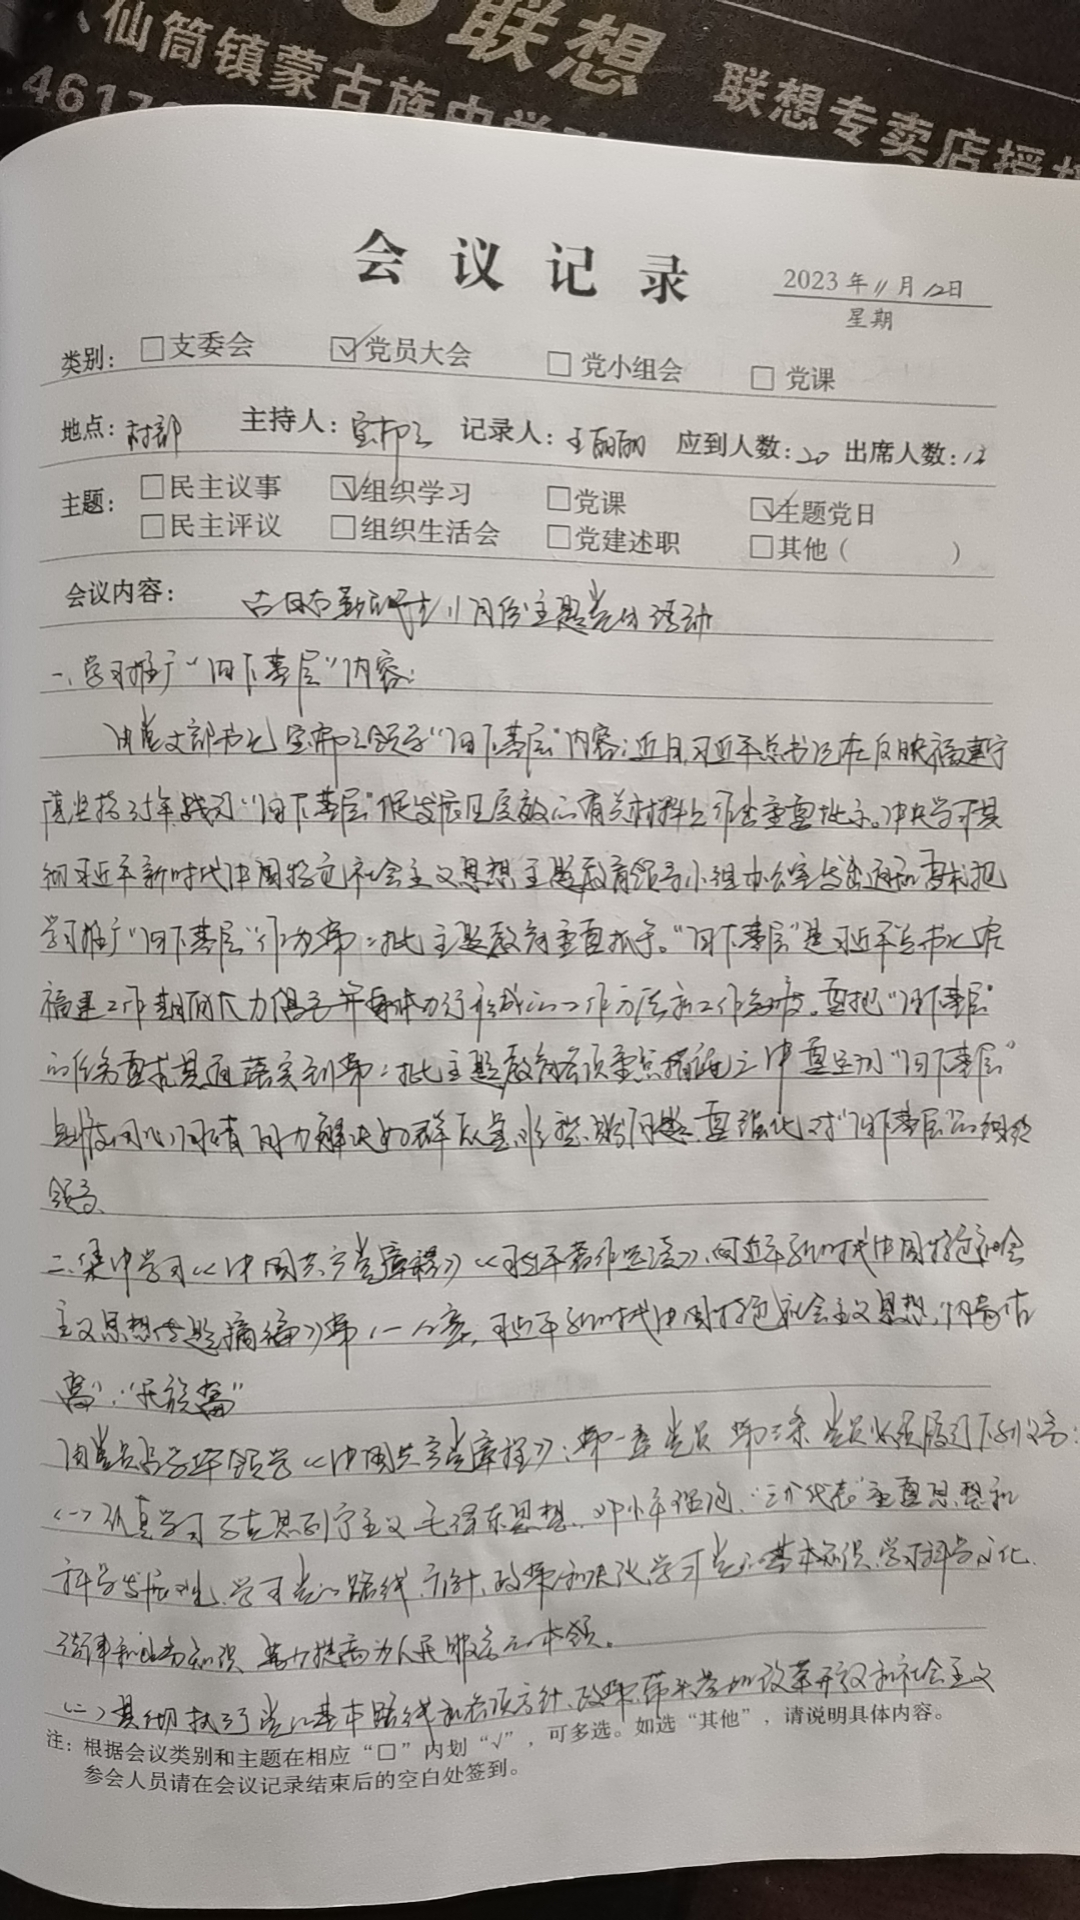 仙筒镇蒙古族中学
联想
联想专卖店授
会议记录
2023年11月12日
星期
类别: □支委会 ☑党员大会 □党小组会 □党课
地点: 村部 主持人: 记录人: 王丽丽 应到人数: 20 出席人数:
主题: □民主议事 ☑组织学习 □党课 ☑主题党日
□民主评议 □组织生活会 □党建述职 □其他( )
会议内容: 11月份主题党日活动
一、学习推广“四下基层”内容:
由党支部书记 领学“四下基层”内容:近日,习近平总书记在反映福建宁
德坚持35年践行“四下基层”促发展见实效的有关材料上作出重要批示。中央学习贯
彻习近平新时代中国特色社会主义思想主题教育领导小组办公室发出通知要求把
学习推广“四下基层”作为第二批主题教育重要抓手。“四下基层”是习近平总书记在
福建工作期间大力倡导并身体力行形成的工作方法和工作制度。要把“四下基层”
的任务要求贯通落实到第二批主题教育各项重点措施之中 要坚持“四下基层”
制度用心用情用力解决好群众急难愁盼问题,要强化对“四下基层”的组织
领导。
二、集中学习《中国共产党章程》《习近平著作选读》、《习近平新时代中国特色社会
主义思想专题摘编》第(一)(二)章,习近平新时代中国特色社会主义思想,“内蒙古
篇”:“民族篇”
由党员 领学《中国共产党章程》:第一章党员 第三条 党员必须履行下列义务:
(一)认真学习马克思列宁主义、毛泽东思想、邓小平理论、“三个代表”重要思想和
科学发展观,学习党的路线、方针、政策和决议,学习党的基本知识,学习科学、文化、
法律和业务知识,努力提高为人民服务的本领。
(二)贯彻执行党的基本路线和各项方针、政策,带头参加改革开放和社会主义
注: 根据会议类别和主题在相应“□”内划“√”,可多选。如选“其他”,请说明具体内容。
参会人员请在会议记录结束后的空白处签到。